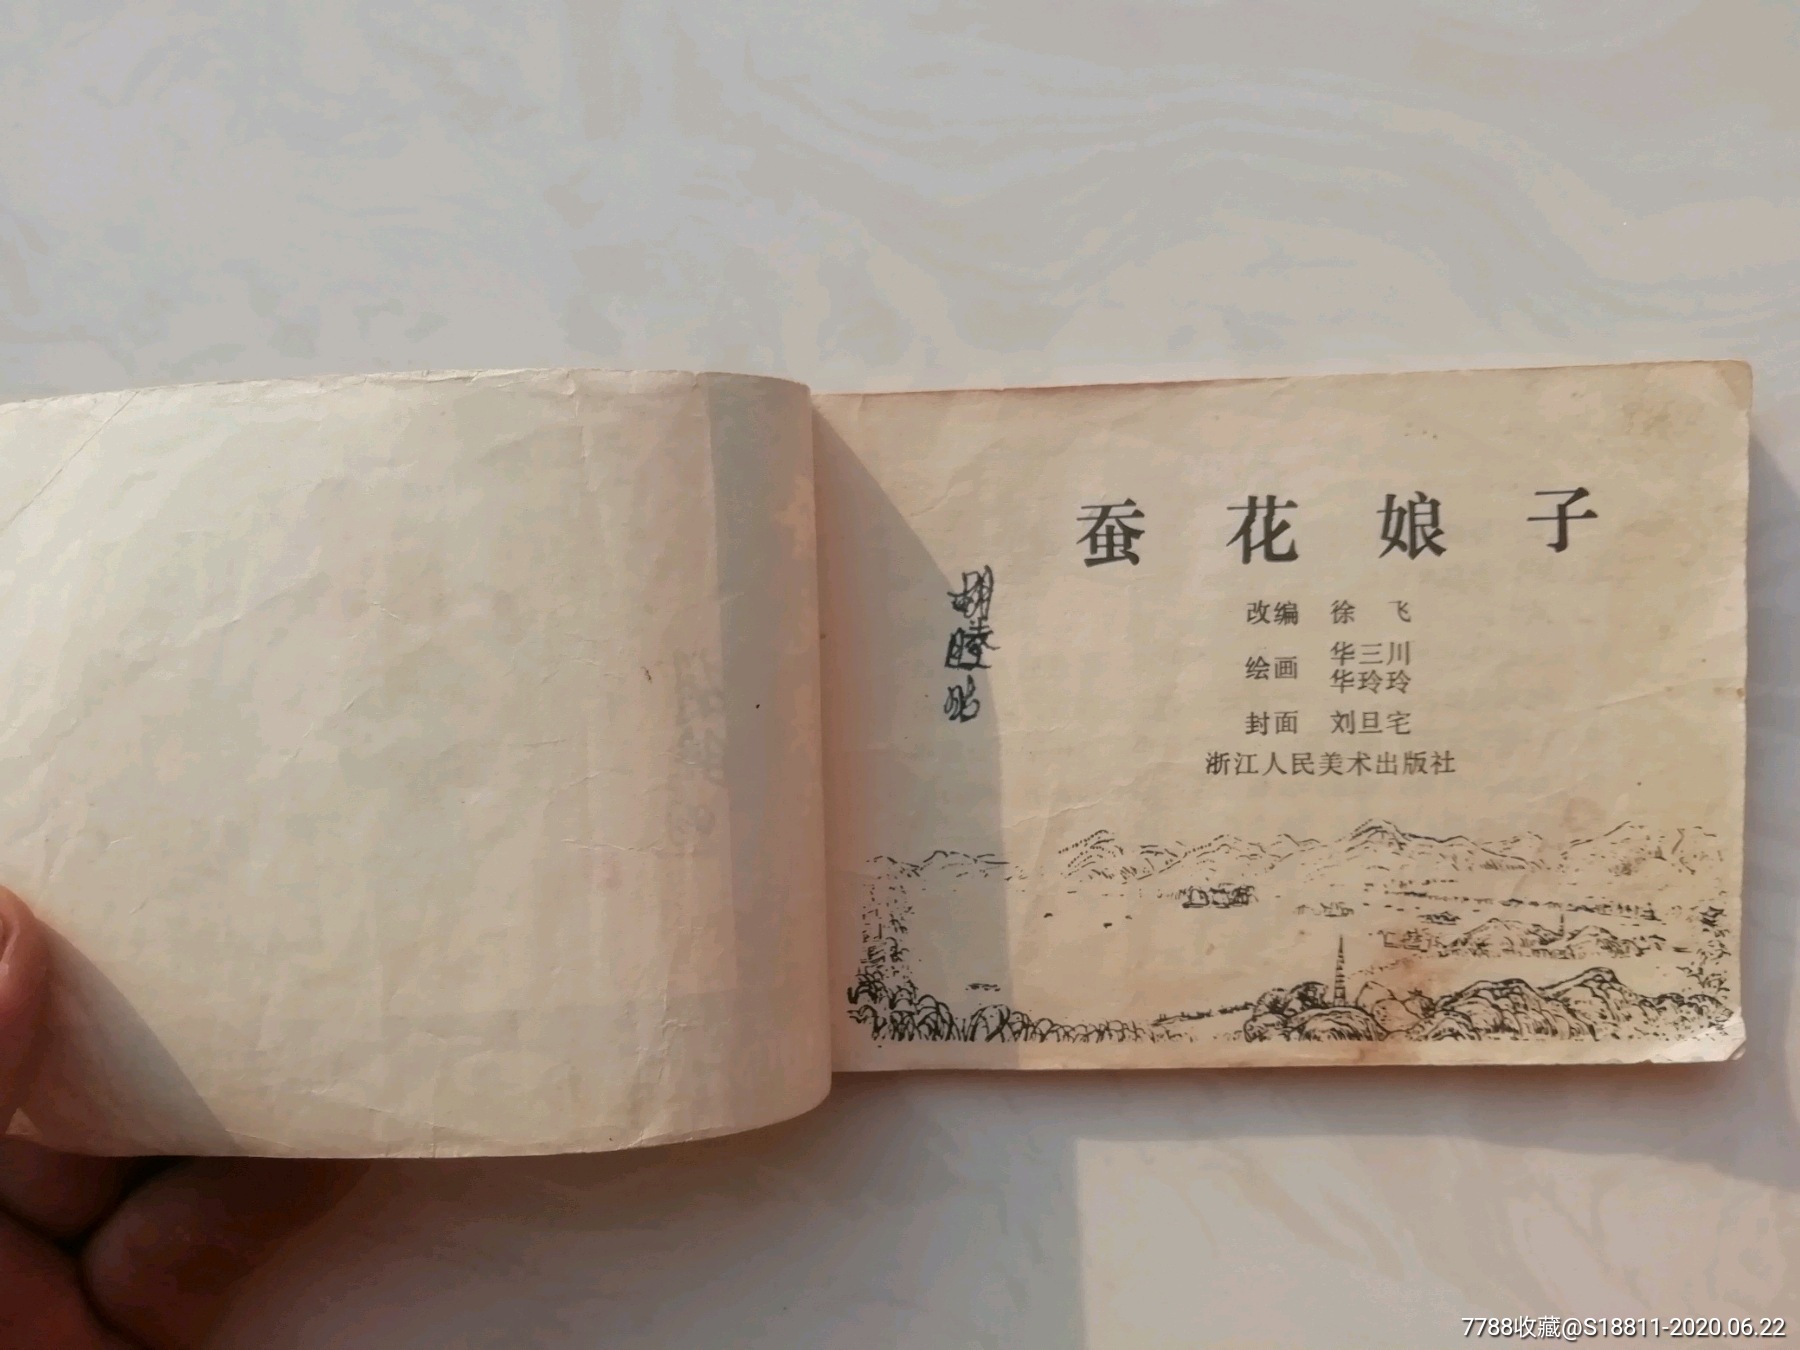 蚕花娘子
改编 徐飞
绘画 华三川
华玲玲
封面 刘旦宅
浙江人民美术出版社
7788收藏@S18811-2020.06.22